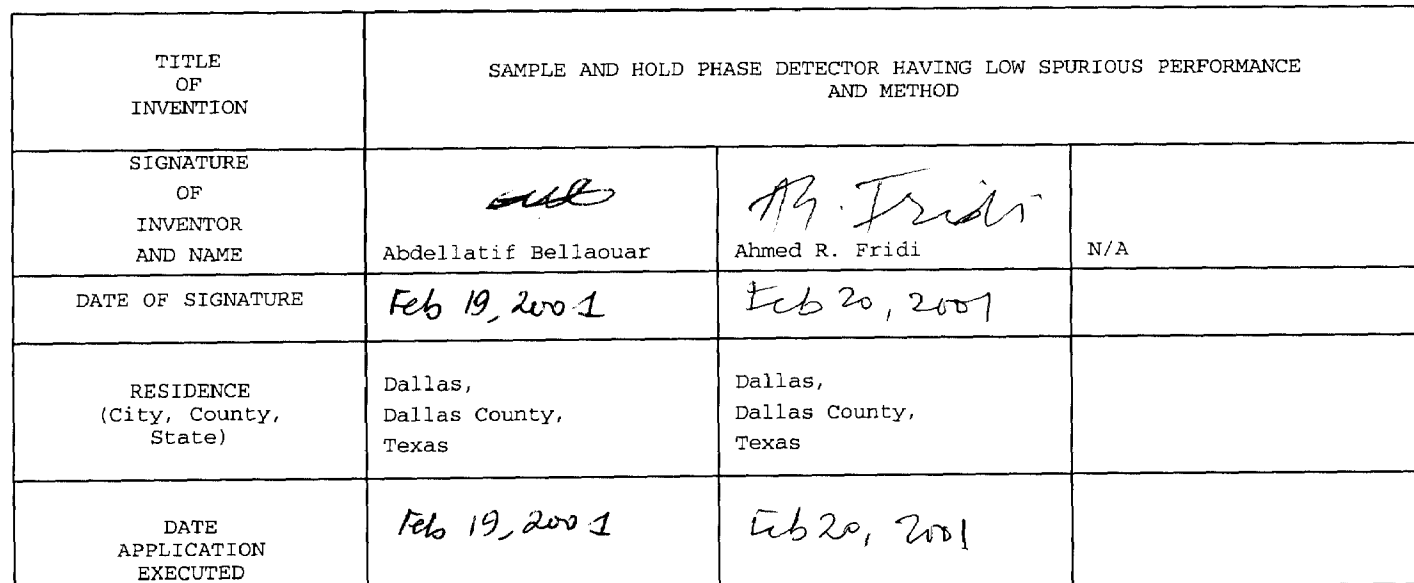 TITLE
OF
INVENTION
SAMPLE AND HOLD PHASE DETECTOR HAVING LOW SPURIOUS PERFORMANCE
AND METHOD
SIGNATURE
OF
INVENTOR
AND NAME
Abdellatif Bellaouar
A. Fridi
Ahmed R. Fridi
N/A
DATE OF SIGNATURE
Feb 19, 2001
Feb 20, 2001
RESIDENCE
(City, County,
State)
Dallas,
Dallas County,
Texas
Dallas,
Dallas County,
Texas
DATE
APPLICATION
EXECUTED
Feb 19, 2001
Feb 20, 2001